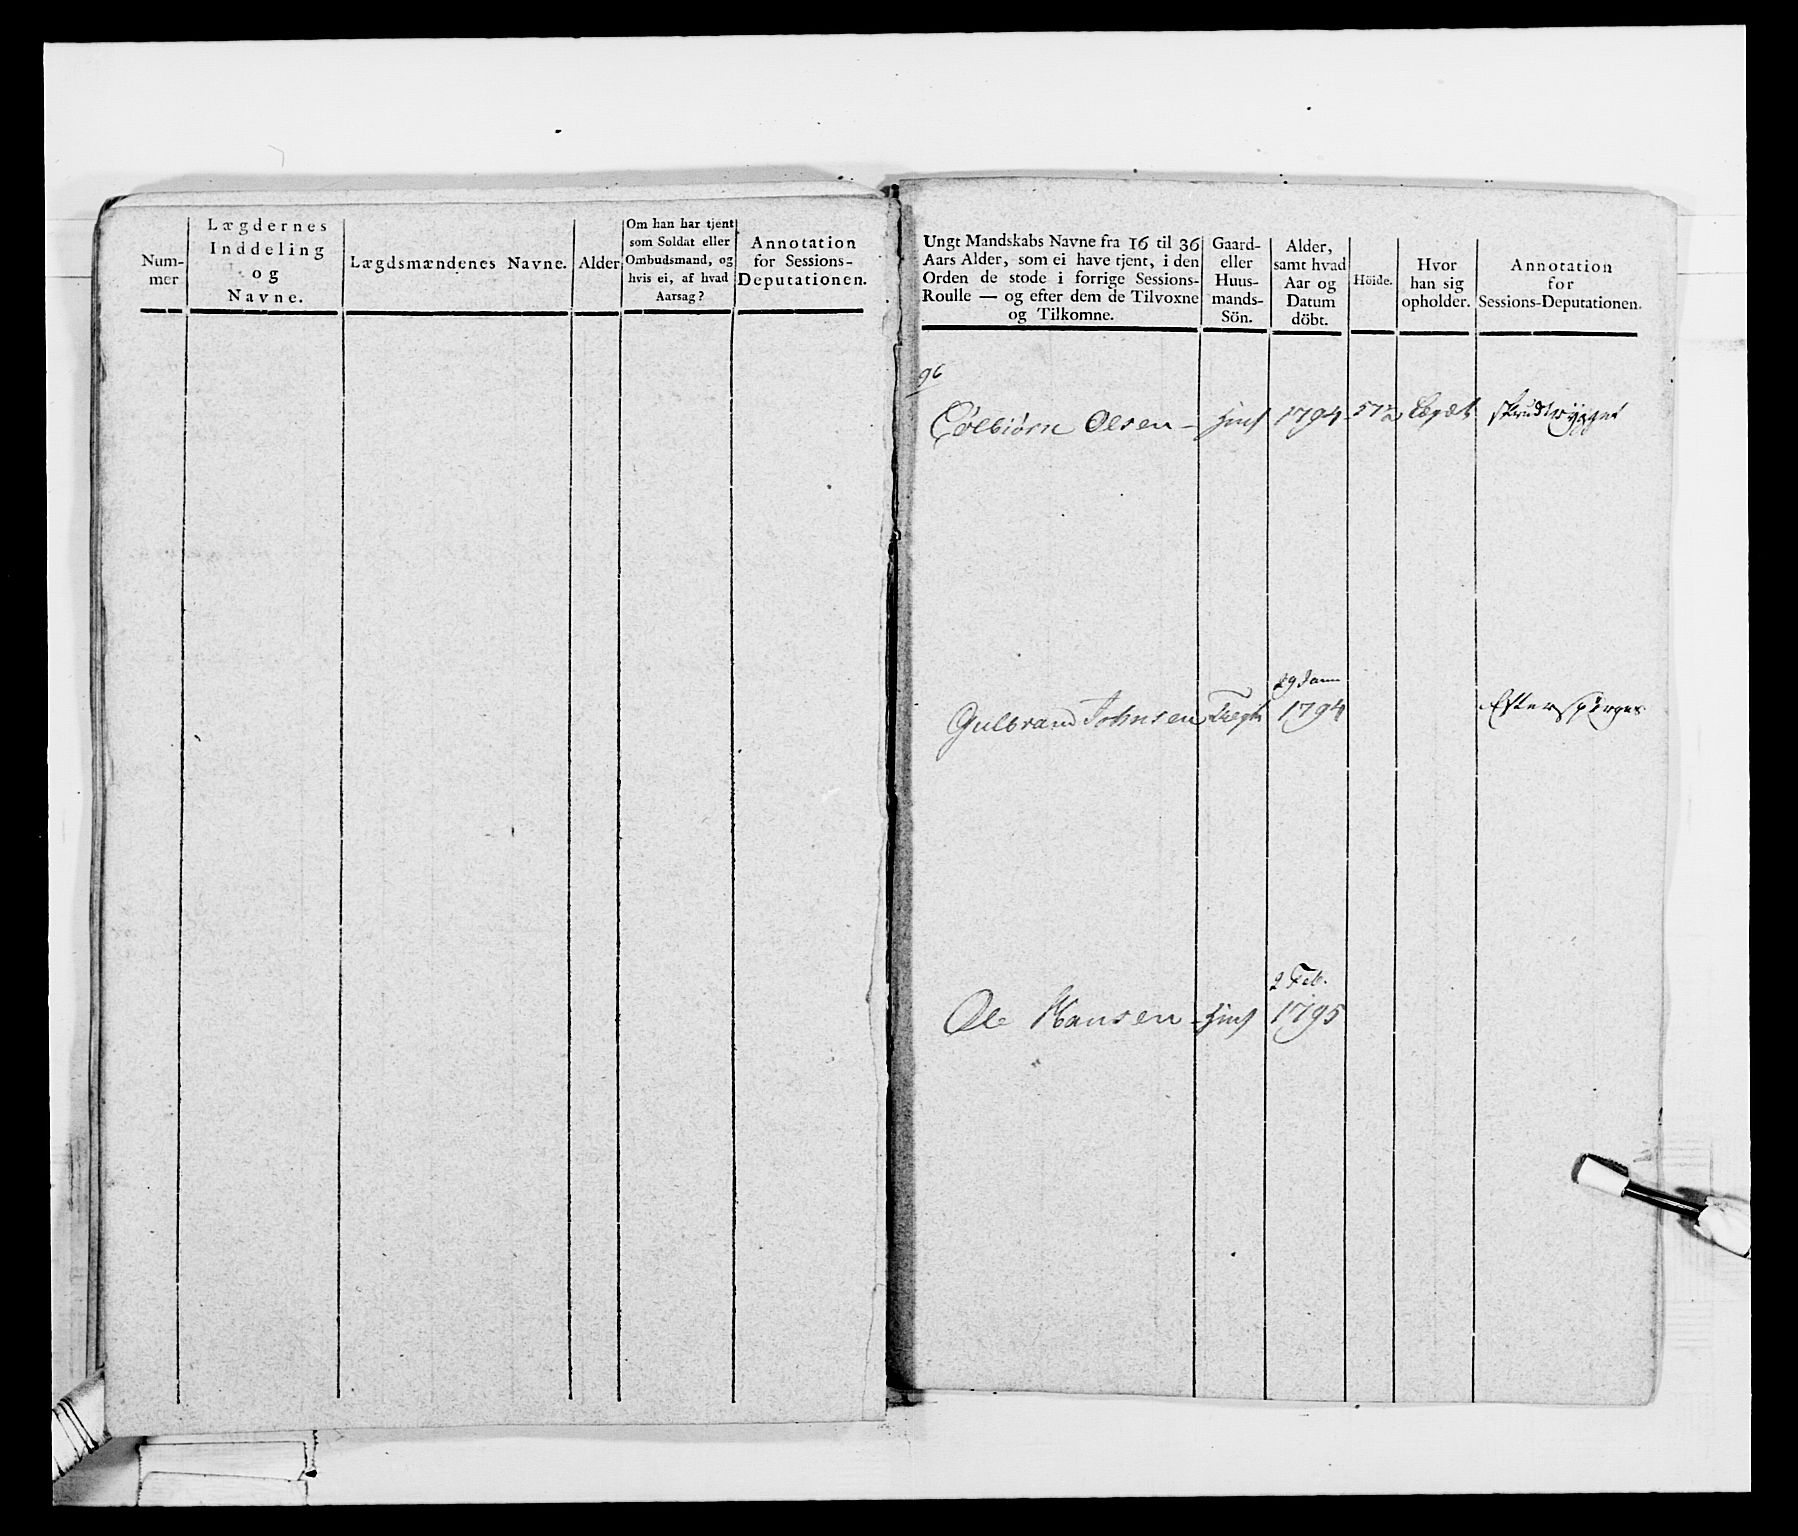 Num-
mer
Lægdernes
Inddeling
og
Navne.
Lægdsmændenes Navne.
Alder
Om han har tjent
som Soldat eller
Ombudsmand, og
hvis ei, af hvad
Aarsag?
Annotation
for Sessions-
Deputationen.
Ungt Mandskabs Navne fra 16 til 36
Aars Alder, som ei have tjent, i den
Orden de stode i forrige Sessions-
Roulle — og efter dem de Tilvoxne
og Tilkomne.
Gaard-
eller
Huus-
mands-
Sön.
Alder,
samt hvad
Aar og
Datum
döbt.
Höide.
Hvor
han sig
opholder.
Annotation
for
Sessions-Deputationen.
96
Colbiørn Olsen - 1794 57½
29 Janu
Gulbrand Johnsen 1794 Efterspørges
2 Feb.
Ole Hansen - 1795